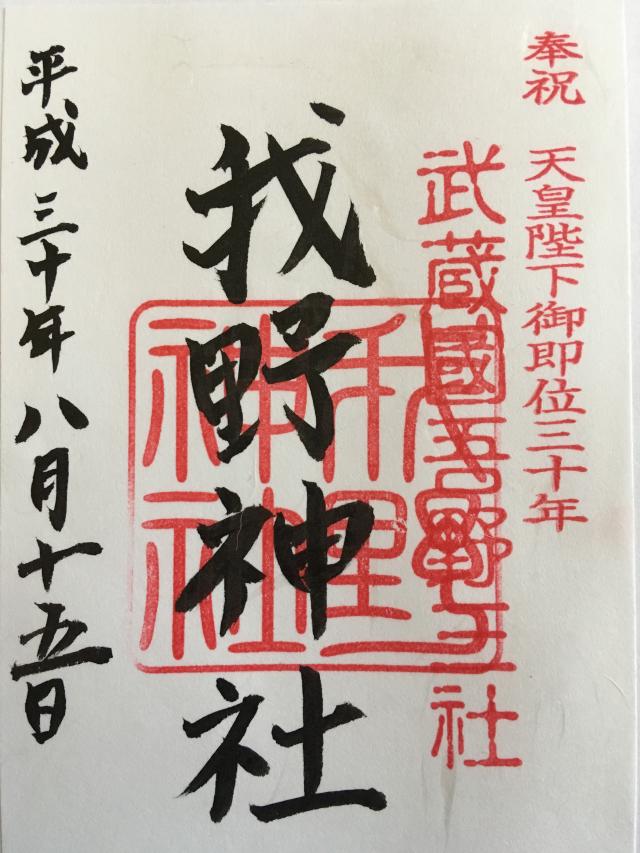 奉祝 天皇陛下御即位三十年
武蔵國吾野 社
我野神社
神社
平成三十年八月十五日